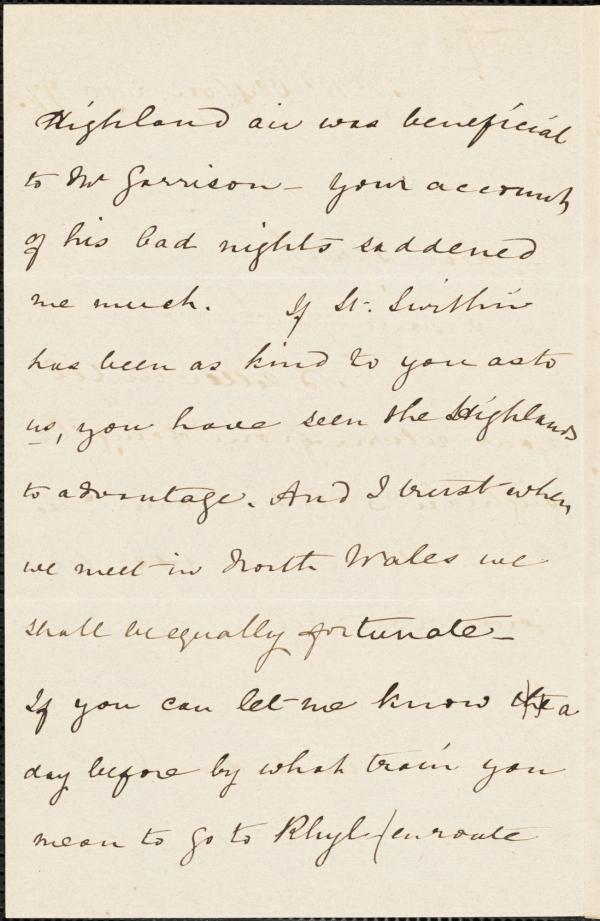 Highland air was beneficial
to Mr Garrison – your account
of his bad nights saddened
me much. If St. Swithin
has been as kind to you as to
us, you have seen the Highlands
to advantage. And I trust when
we meet in North Wales we
shall be equally fortunate –
If you can let me know a
day before by what train you
mean to go to Rhyl (en route